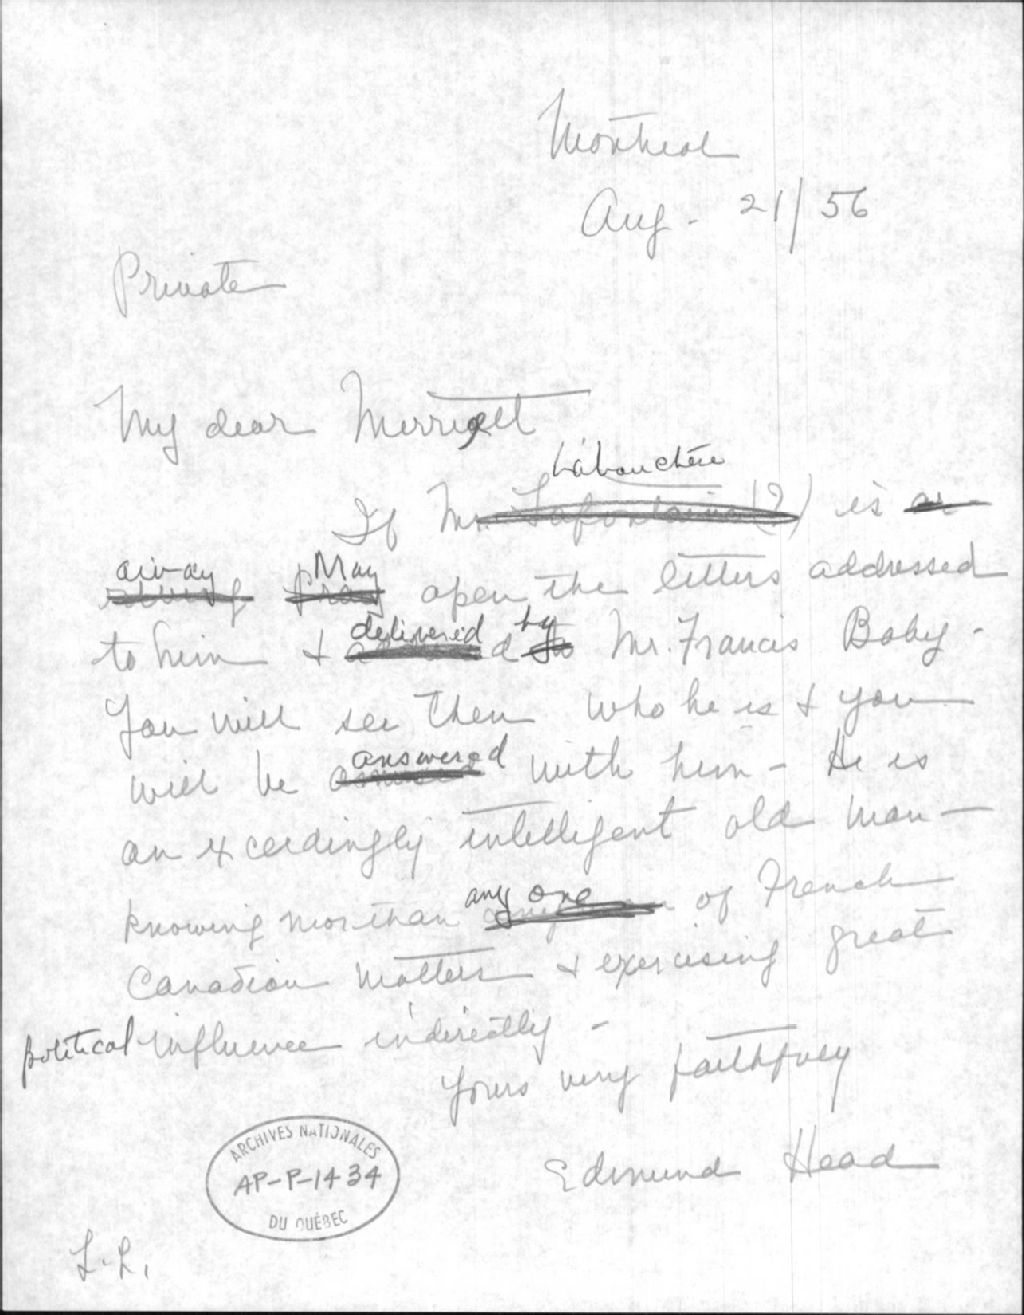 Montreal
Aug - 21/56
Private
My dear Merriett
Labouchère
If Mr Lafontaine (?) is
away May open the letters addressed
to him & delivered by Mr. Francis Baby -
You will see then who he is & you
will be answered with him - He is
an exceedingly intelligent old man -
knowing more than any one of French
Canadian matters & exercising great
political influence indirectly -
Yours very faithfuly
Edmund Head
ARCHIVES NATIONALES
AP-P-1434
DU QUÉBEC
L.L.